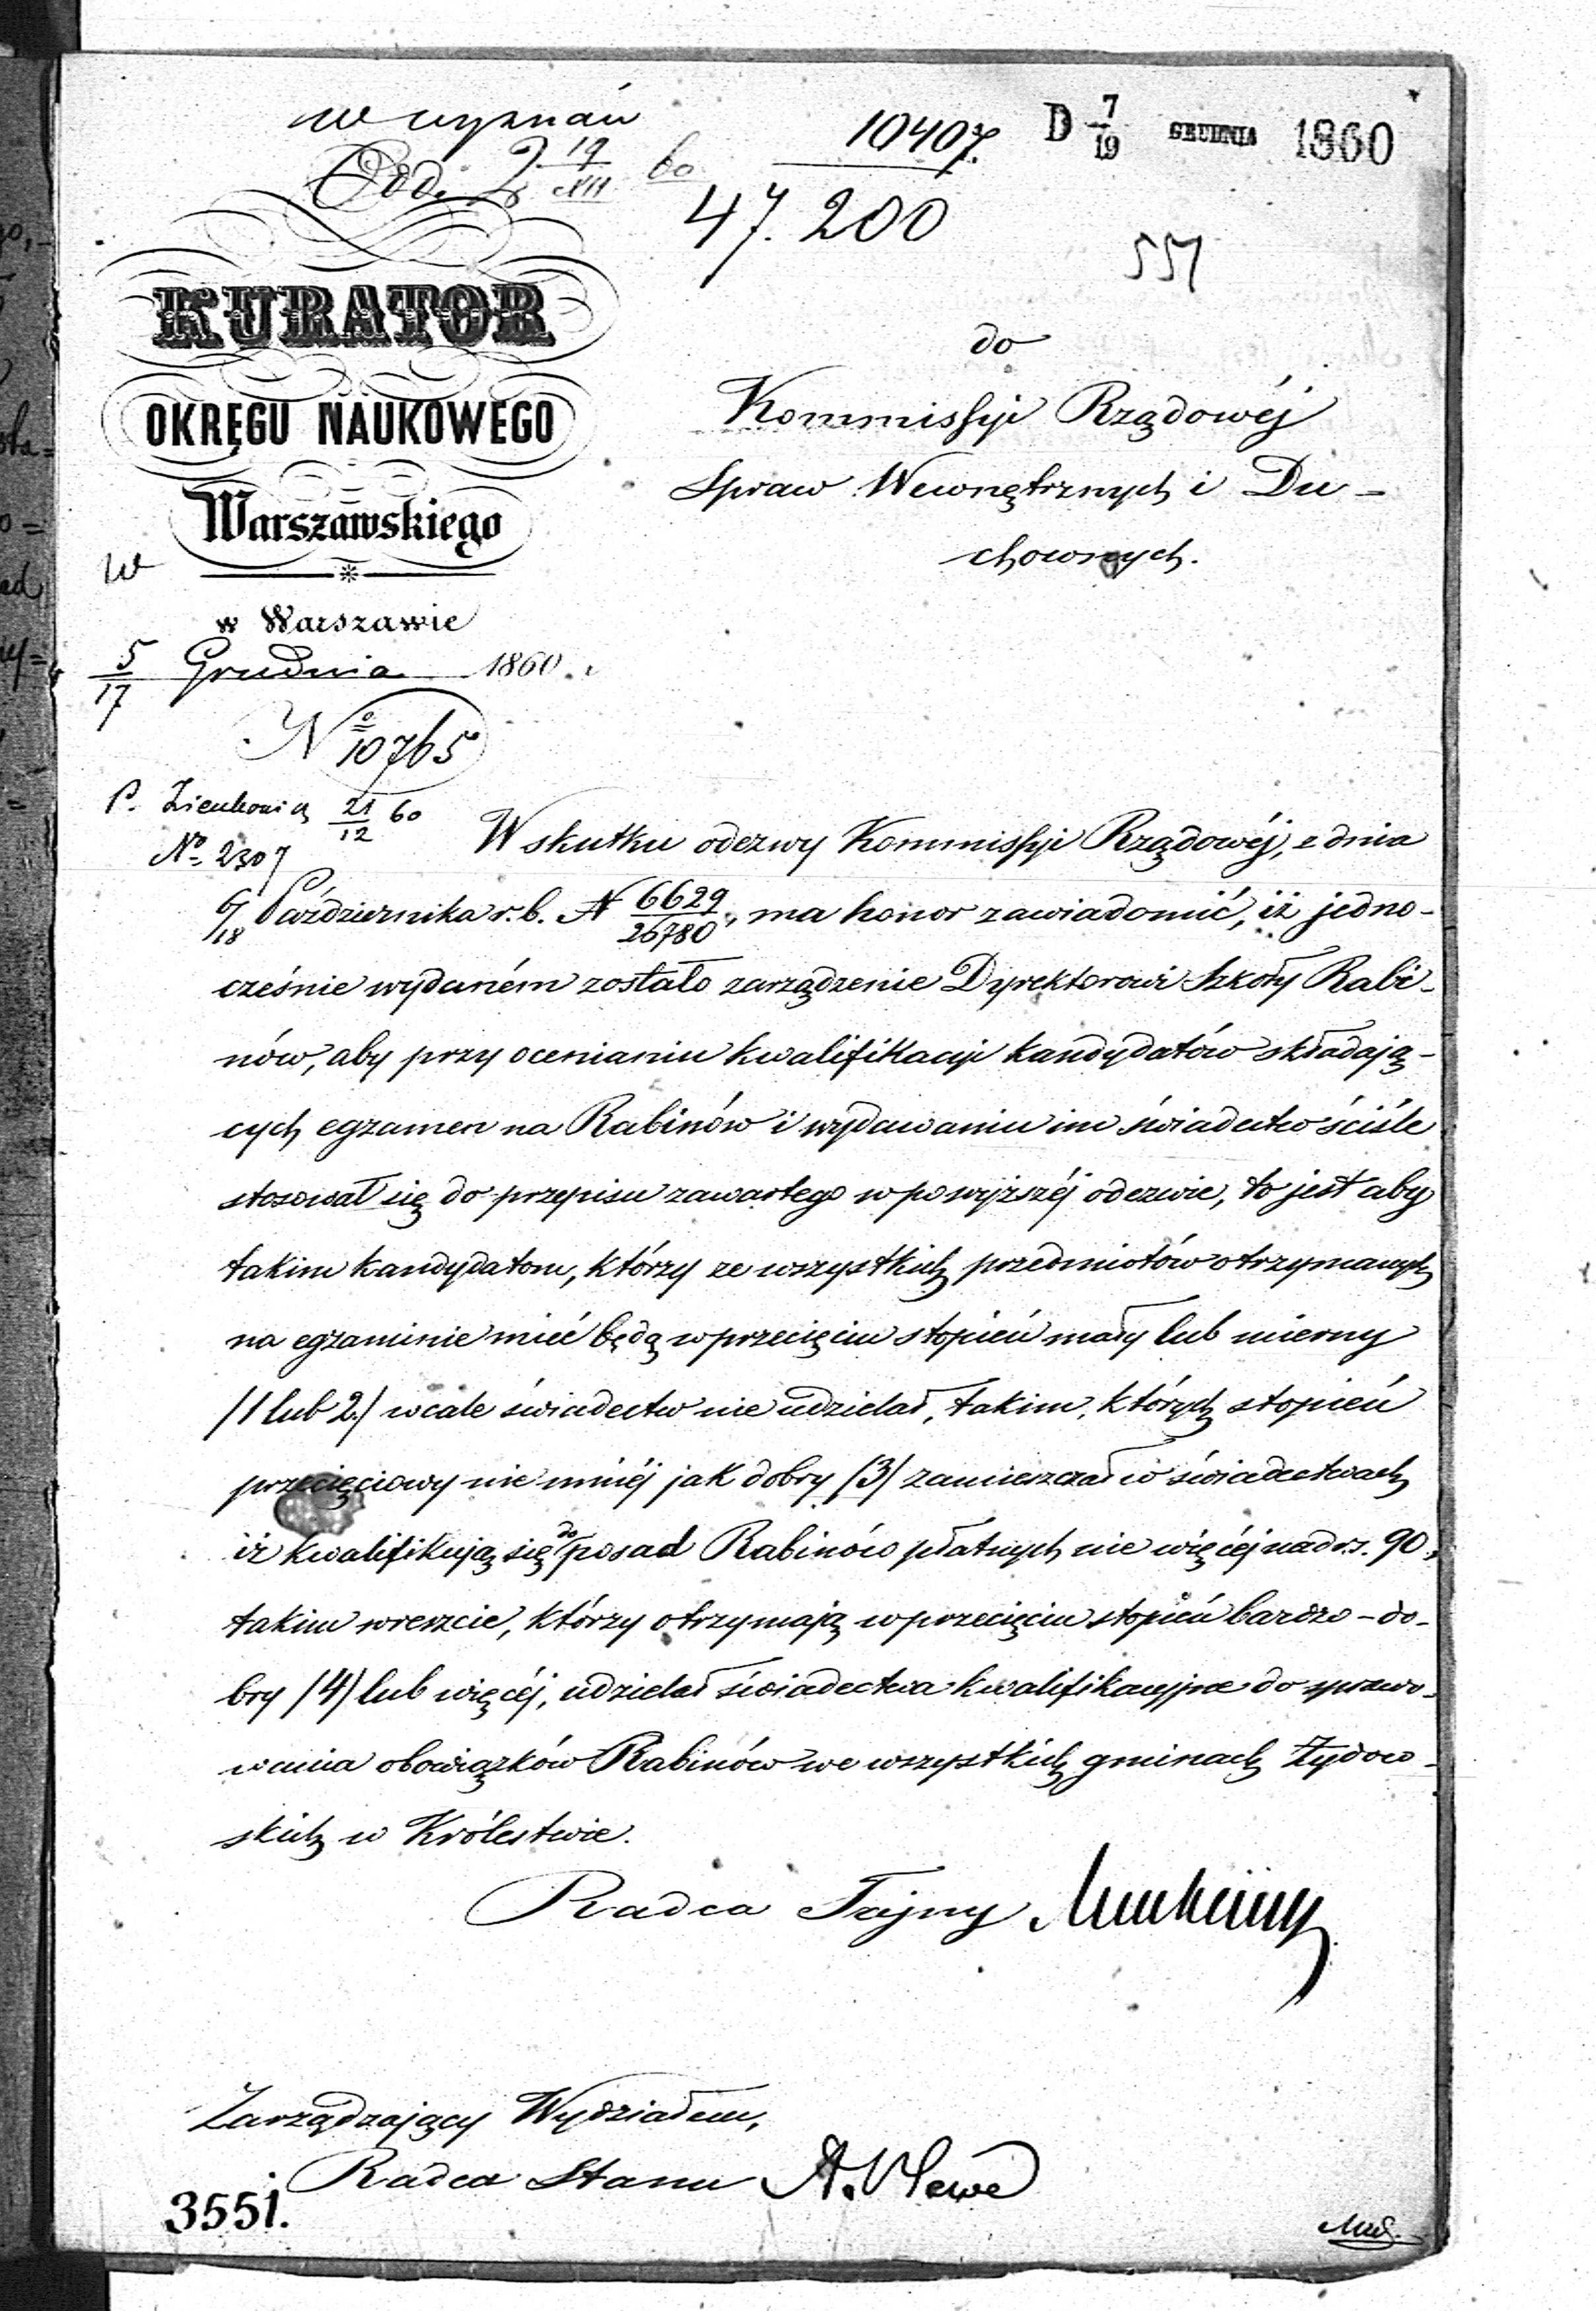 W wyznań
Odd. 2 19/XII 60
10407.
47.200
D 7/19 GRUDNIA 1860
557
KURATOR
OKRĘGU NAUKOWEGO
Warszawskiego
W
w Warszawie
5/17 Grudnia 1860.
№ 10765
P. 21/12 60
№ 2307
do
Kommissyi Rządowéj
Spraw Wewnętrznych i Du-
chownych.
W skutku odezwy Kommissyi Rządowéj, z dnia
6/18 Października r.b. N 6629/26780, ma honor zawiadomić, iż jedno-
cześnie wydaném zostało zarządzenie Dyrektorowi Szkoły Rabi-
nów, aby przy ocenianiu kwalifikacyi kandydatów składają-
cych egzamen na Rabinów i wydawaniu im świadectw ściśle
stosował się do przepisu zawartego w powyższéj odezwie, to jest aby
takim kandydatom, którzy ze wszystkich przedmiotów otrzymanych
na egzaminie mieć będą w przecięciu stopień mały lub mierny
/1 lub 2/ wcale świadectw nie udzielał, takim, których stopień
przecięciowy nie mniéj jak dobry /3/ zamieszczał w świadectwach
iż kwalifikują się do posad Rabinów płatnych nie więcéj nad r.s. 90,
takim wreszcie, którzy otrzymają w przecięciu stopień bardzo-do-
bry /4/ lub więcéj, udzielał świadectwa kwalifikacyjne do sprawo-
wania obowiązków Rabinów we wszystkich gminach Żydow-
skich w Królestwie.
Radca Tajny
Zarządzający Wydziałem,
Radca Stanu A. Plewe
3551.